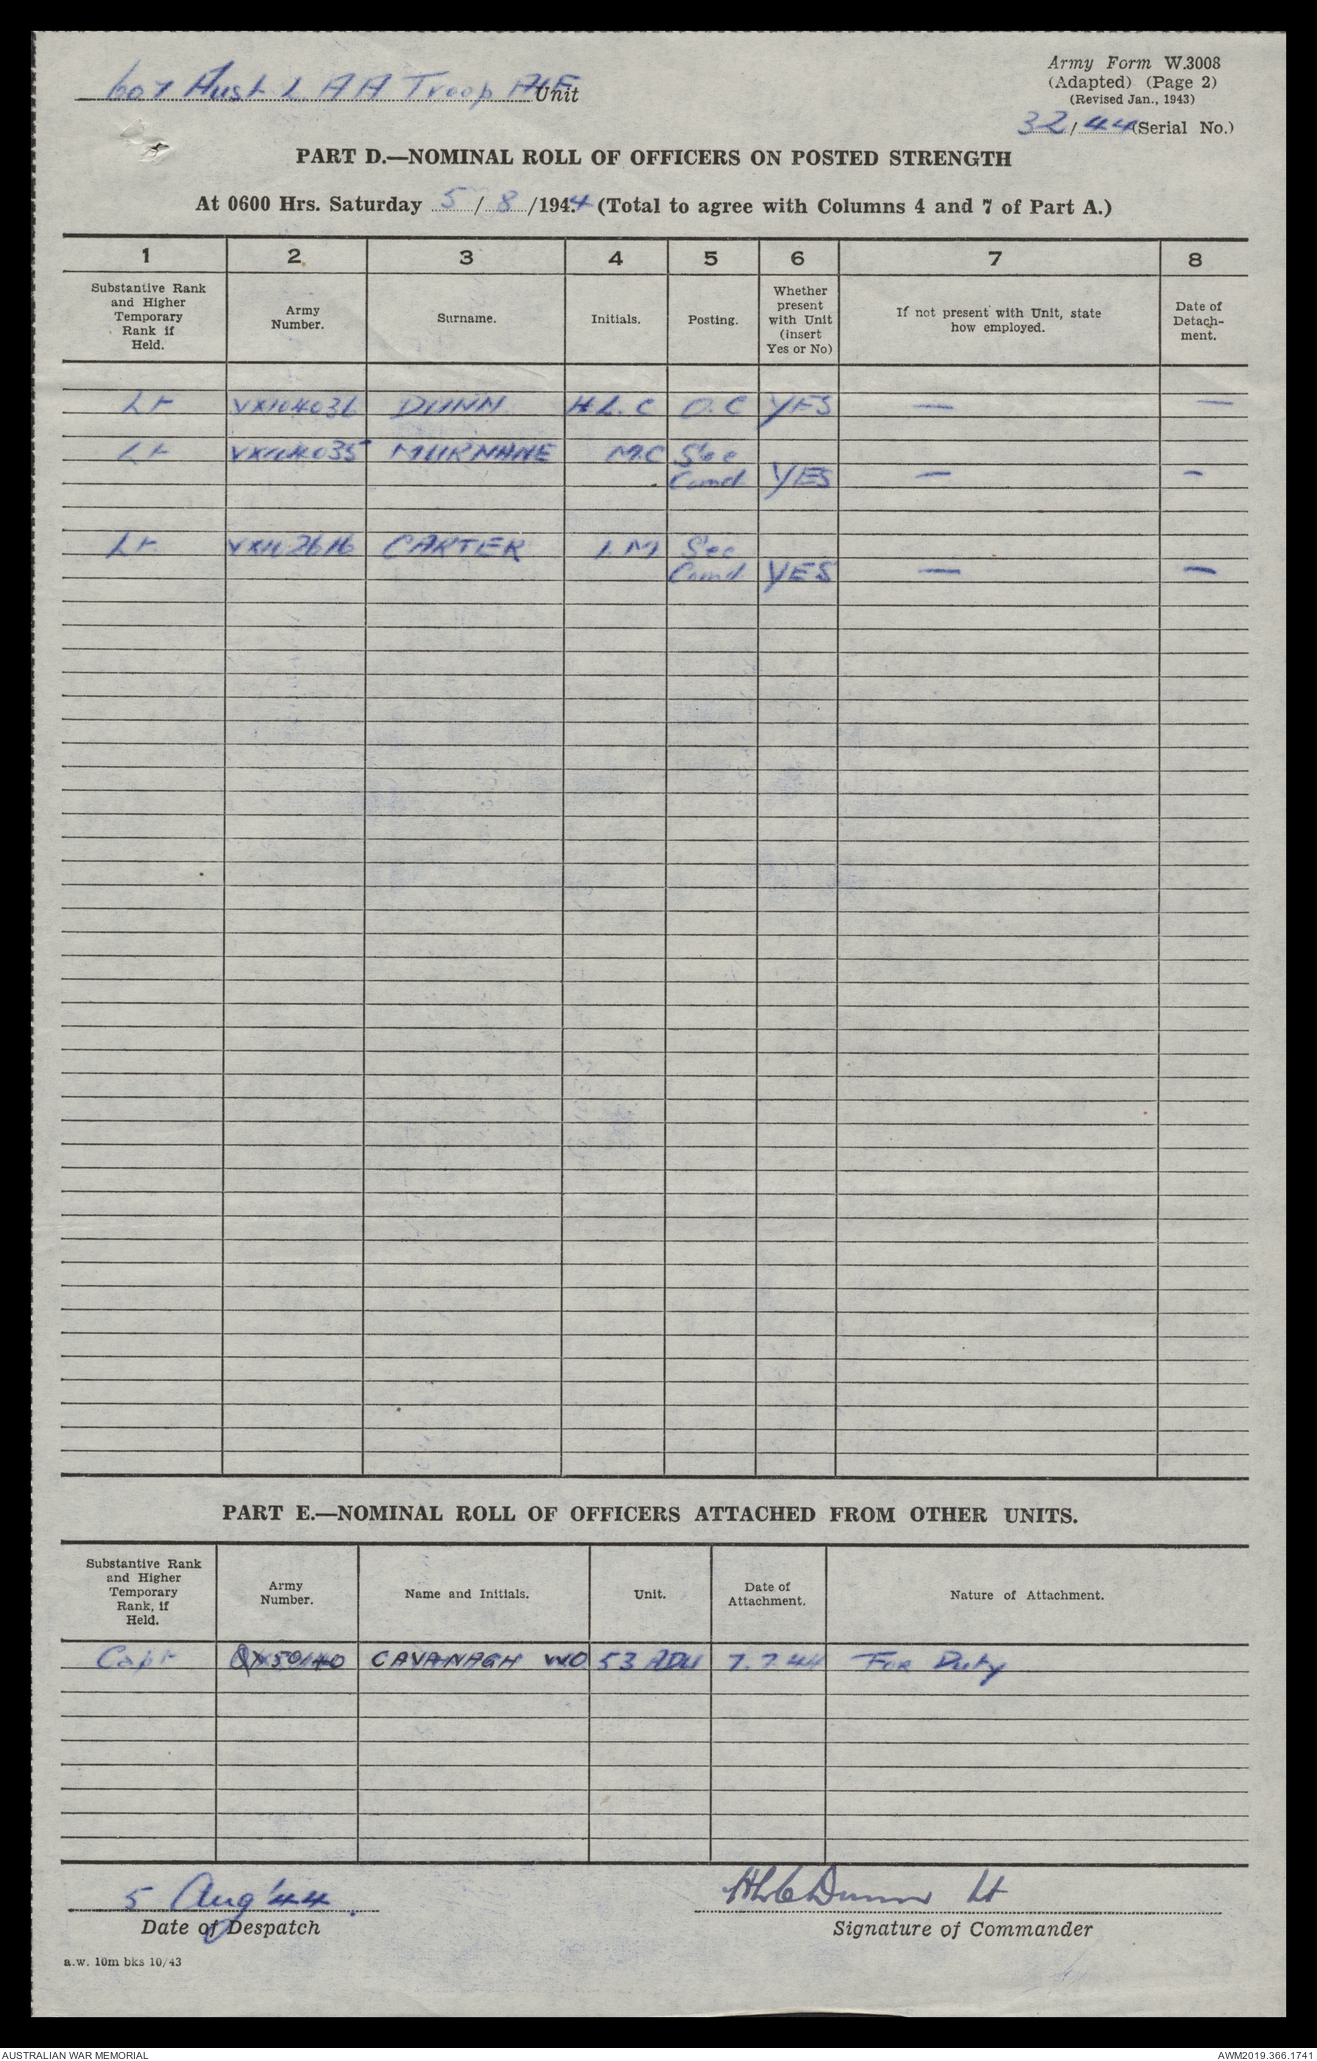 607 Aust L AA Troop AIF Unit
Army Form W.3008
(Adapted) (Page 2)
(Revised Jan., 1943)
32/44 (Serial No.)
PART D.—NOMINAL ROLL OF OFFICERS ON POSTED STRENGTH
At 0600 Hrs. Saturday 5/8/1944 (Total to agree with Columns 4 and 7 of Part A.)
1 2 3 4 5 6 7 8
Substantive Rank and Higher Temporary Rank if Held. Army Number. Surname. Initials. Posting. Whether present with Unit (insert Yes or No) If not present with Unit, state how employed. Date of Detachment.
Lt DUNN H L. C O.C YES — —
Lt MURNANE M.C Sec
Comd YES — —
Lt CARTER I. M Sec
Comd YES — —
PART E.—NOMINAL ROLL OF OFFICERS ATTACHED FROM OTHER UNITS.
Substantive Rank and Higher Temporary Rank, if Held. Army Number. Name and Initials. Unit. Date of Attachment. Nature of Attachment.
Capt QX50140 CAVANAGH WO 53 ADU 7.7.44 For Duty
5 Aug '44. HLC Dunn Lt
Date of Despatch Signature of Commander
a.w. 10m bks 10/43
AUSTRALIAN WAR MEMORIAL AWM2019.366.1741